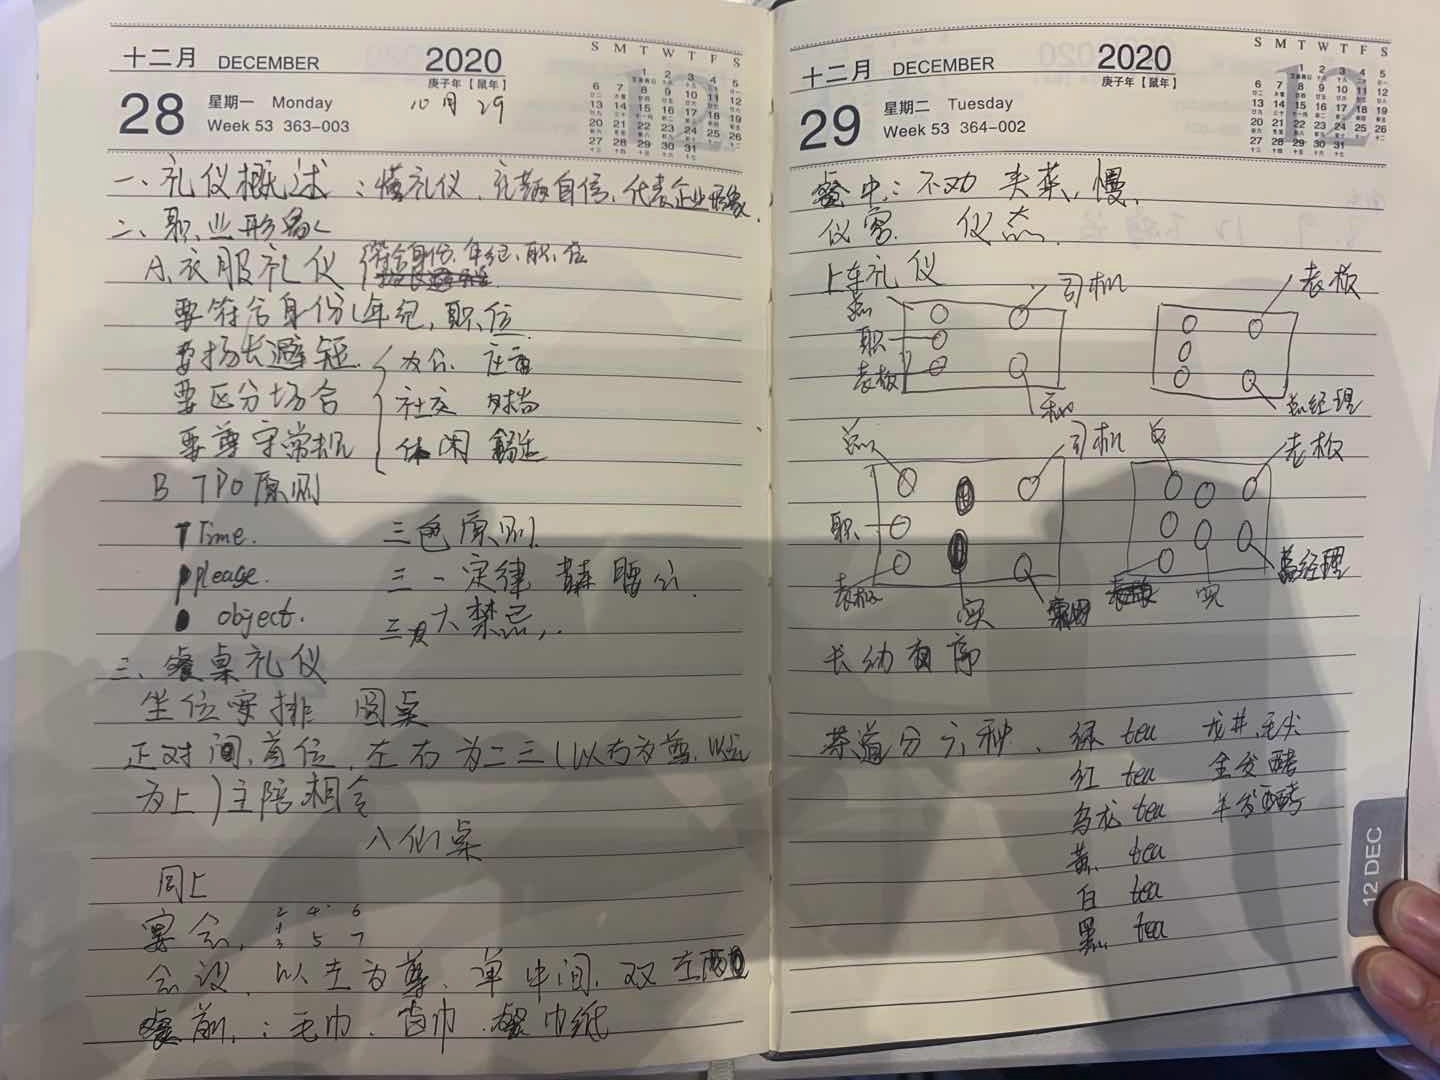 十二月 DECEMBER 2020
庚子年【鼠年】
28 星期一 Monday 10月29
Week 53 363-003
S M T W T F S
1 2 3 4 5
6 7 8 9 10 11 12
13 14 15 16 17 18 19
20 21 22 23 24 25 26
27 28 29 30 31
一、礼仪概述：懂礼仪、自信、代表企业形象
二、职业形象
A.衣服礼仪 符合身份、年纪、职位
要符合身份、年纪、职位
要扬长避短 办公 庄重
要区分场合 社交 时尚
要尊守常规 休闲 舒适
B TPO原则
Time. 三色原则.
please. 三一定律
object. 三大禁忌
三、餐桌礼仪
坐位安排 圆桌
正对门首位,左右为二三(以右为尊.以远
为上)主陪相令
八仙桌
同上
宴会, 2 4 6
1
3 5 7
会议,以左为尊、单中间.双左
餐前,：毛巾.
巾纸
十二月 DECEMBER 2020
庚子年【鼠年】
29 星期二 Tuesday
Week 53 364-002
S M T W T F S
1 2 3 4 5
6 7 8 9 10 11 12
13 14 15 16 17 18 19
20 21 22 23 24 25 26
27 28 29 30 31
餐中：不动 夹菜,慢,
仪容 仪态.
上车礼仪
总 司机 老板
职
老板
总经理
总 司机 总 老板
职
老板 实 实 总经理
长幼有序
茶道分六种、绿 tea 龙井,毛尖
红 tea 全发酵
乌龙 tea 半发酵
黄 tea
白 tea
黑 tea
12 DEC